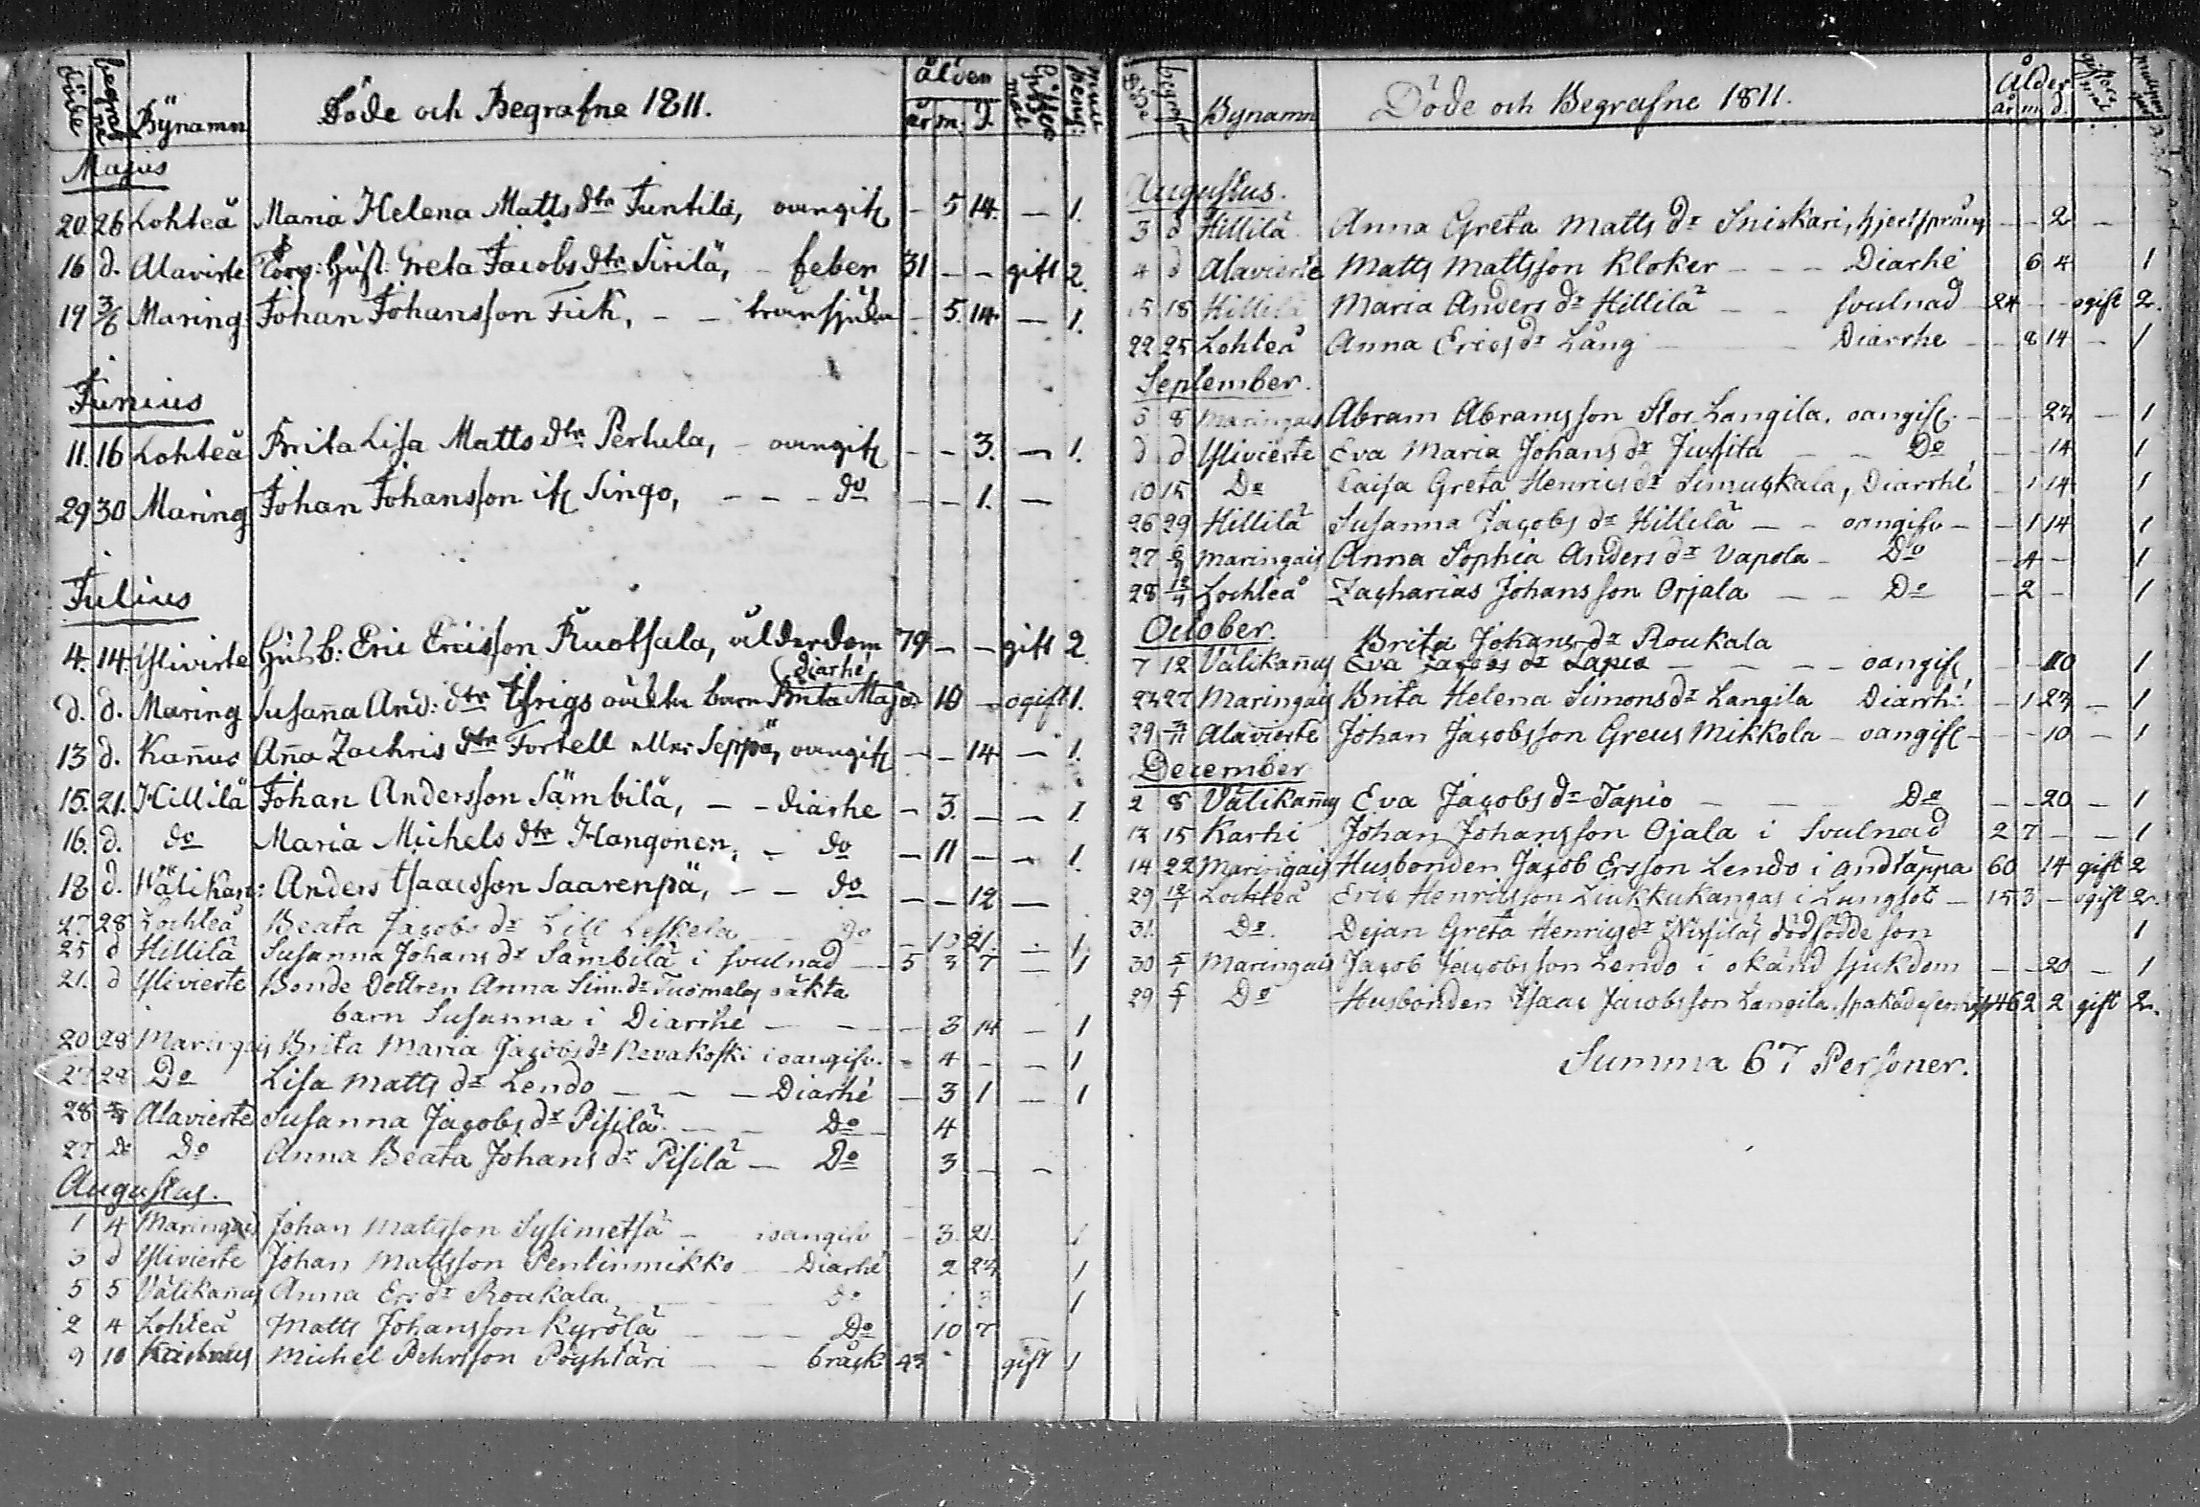 döde begrafne Bÿnamn Döde och Begrafne 1811. år m. d.
Majus
20. 26 Lohteå Maria Helena Matts dtr Juntila, oangifz - 5 14. - 1.
16 d. Alavirte Torp: Hust: Greta Jacobs dtr Sirilä, - feber 31 - - gift 2.
19 3/6 Maring Johan Johansson Fick, - - - 5. 14. - 1.
Junius
11. 16 Lohteå Brita Lisa Matts dtr Pertula, - oangifz - - 3. - 1.
29 30 Maring Johan Johansson Singo, - - - do - - 1. -
Julius
4. 14 Ylivirte Husb: Eric Ericsson Ruotsala, ålderdom 79 - - gift 2
diarhé
d. d. Maring Susaña And: dtr oäkta barn Brita Maja 10 - ogift 1.
13 d. Kañus Aña Zachris dtr Fortell eller Seppä, oangifz - - 14. - 1.
15. 21. Hillilä Johan Andersson Sämbilä, - - diarhe - 3. - - 1.
16. d. do Maria Michels dtr Hangonen, - do - 11 - - 1.
18 d. Wälikan: Anders Isaacsson Saarenpä, - - do - - 12 -
27 28 Lochteå Beata Jacobs dr Lill Leskela Do - 10 21. - 1
25 d Hillilä Susanna Johans dr Sämbilä i svulnad - 5 3 7 - 1
21. d Ylivierte Bonde Dottren Anna Sim. dr Tuomalas oäkta
barn Susanna i Diarrhé - - - 3 14 - 1
20 28 Maringais Brita Maria Jacobs dr Nevakoski i oangifv. - 4 - - 1
27 28 Do Lisa Matts dr Lendo - - - Diarhé - 3 1 - 1
28 Alavierte Susanna Jacobs dr Pisilä - - Do - 4
27 Do Do Anna Beata Johans dr Pisilä - Do 3 - -
Augustus.
1 4 Maringais Johan Matsson Sysimetsä - i oangifv - 3. 21. 1
3 d Ylivierte Johan Mattsson Pentinmikko Diarhé 2 27 1
5 5 Välikañus Anna Ers dr Roukala - do 1 3 1
2 4 Lohteå Matts Johansson Kyrölä - - - Do 10 7
9 10 Kañus Michel Pehrsson Pöyhtäri - - bråck 43 gift 1
döde begrafn Bynamn Döde och Begrafne 1811. Ålder år m. d.
Augustus.
3 d Hillilä Anna Greta Matts dr Sniskari, hjertspräng - - 2 -
4 d Alavierte Matts Mattsson Kloker - - - Diarhé 6 4 1
15 18 Hillilä Maria Anders dr Hillilä - - svulnad 24 - - ogift 2.
22 25 Lohteå Anna Erics dr Lång Diarrhe - 8 14 - 1
September.
8 Maringais Abram Abramsson Stor Langila. oangifz. - - 27 - 1
d d Ylivierte Eva Maria Johans dr Jussila - - Do - - 14 1
10 15 Do Caisa Greta Henrics dr Simuskala, Diarrhé - 1 14 1
26 29 Hillilä Susanna Jacobs dr Hillilä - - oangifv - - 1 14 1
27 6 Maringais Anna Sophia Anders dr Vapola - Do - 4 - 1
28 Lochteå Zacharias Johansson Orjala - - Do - 2 - 1
October. Brita Johans dr Roukala
7 12 Välikañus Eva Jacobs dr Lapio - - - - oangifz - - 10 1
27 Maringais Brita Helena Simons dr Langila Diarrh: - 1 27 - 1
29 Alavierte Johan Jacobsson Greus Mikkola - oangifz - - - 10 - 1
December
2 8 Välikañus Eva Jacobs dr Tapio - - - Do - - 20 - 1
13 15 Karhi Johan Johansson Ojala i Svulnad 2 7 - - 1
14 22 Maringais Husbonden Jacob Ersson Lendo i andtäppa 60 14 gift 2
29 Lochteå Eric Henricsson Liukkukangas i Lungsot - 15 3 - ogift 2.
31. Do. Dejan Greta Henrics dr Nissiläs dödfödde son 1
30 Maringais Jacob Jacobsson Lendo i okänd sjukdom - - 20 - 1
29 Do Husbonden Isaac Jacobsson Langila 46 2 2 gift 2.
Summa 67 Personer.